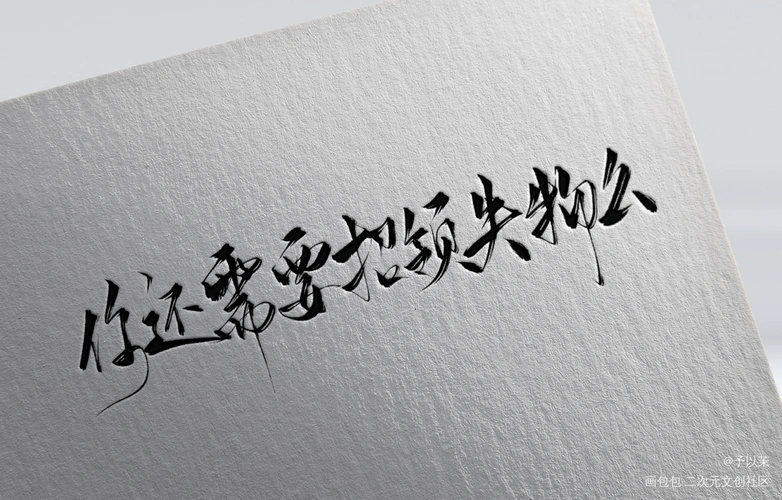 你还需要招领失物么
@予以茉
画包包 二次元文创社区